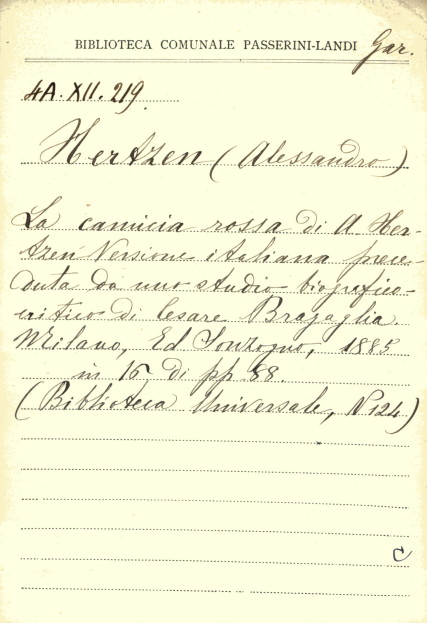 BIBLIOTECA COMUNALE PASSERINI-LANDI Gar.
4A. XII. 219
Hertzen (Alessandro)
La camicia rossa di A. Her-
tzen Versione italiana prece-
duta da uno studio biografico-
critico di Cesare Bragaglia.
Milano, Ed Sonzogno, 1885
in 16 di pp 88.
(Biblioteca Universale, N 124)
C